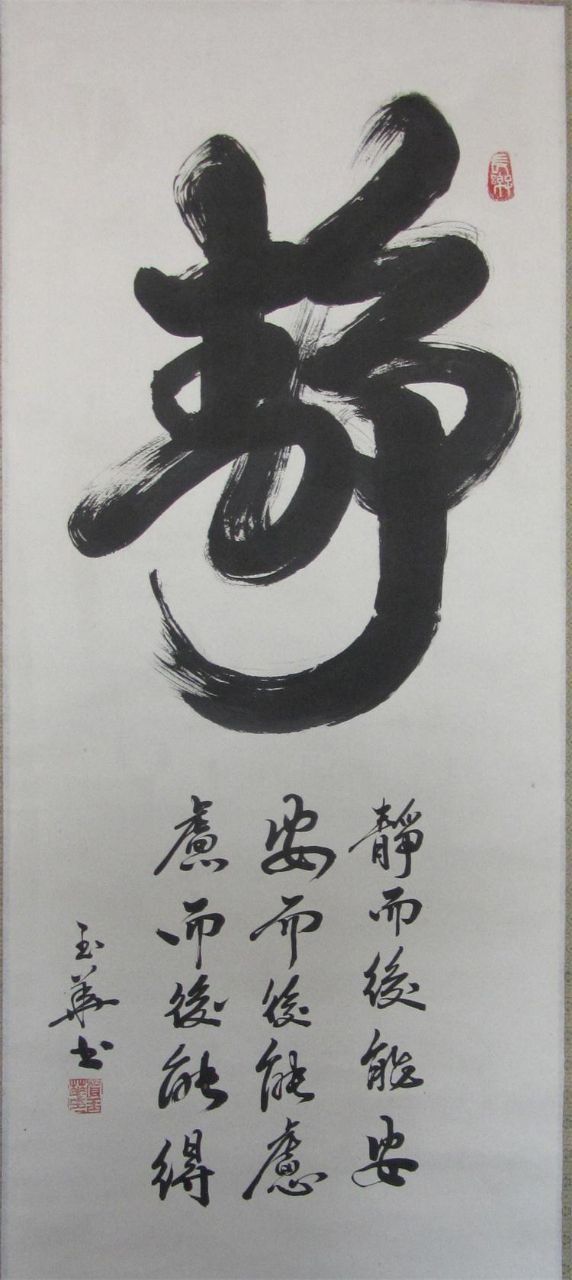 靜
長樂
靜而後能安
安而後能慮
慮而後能得
玉華書